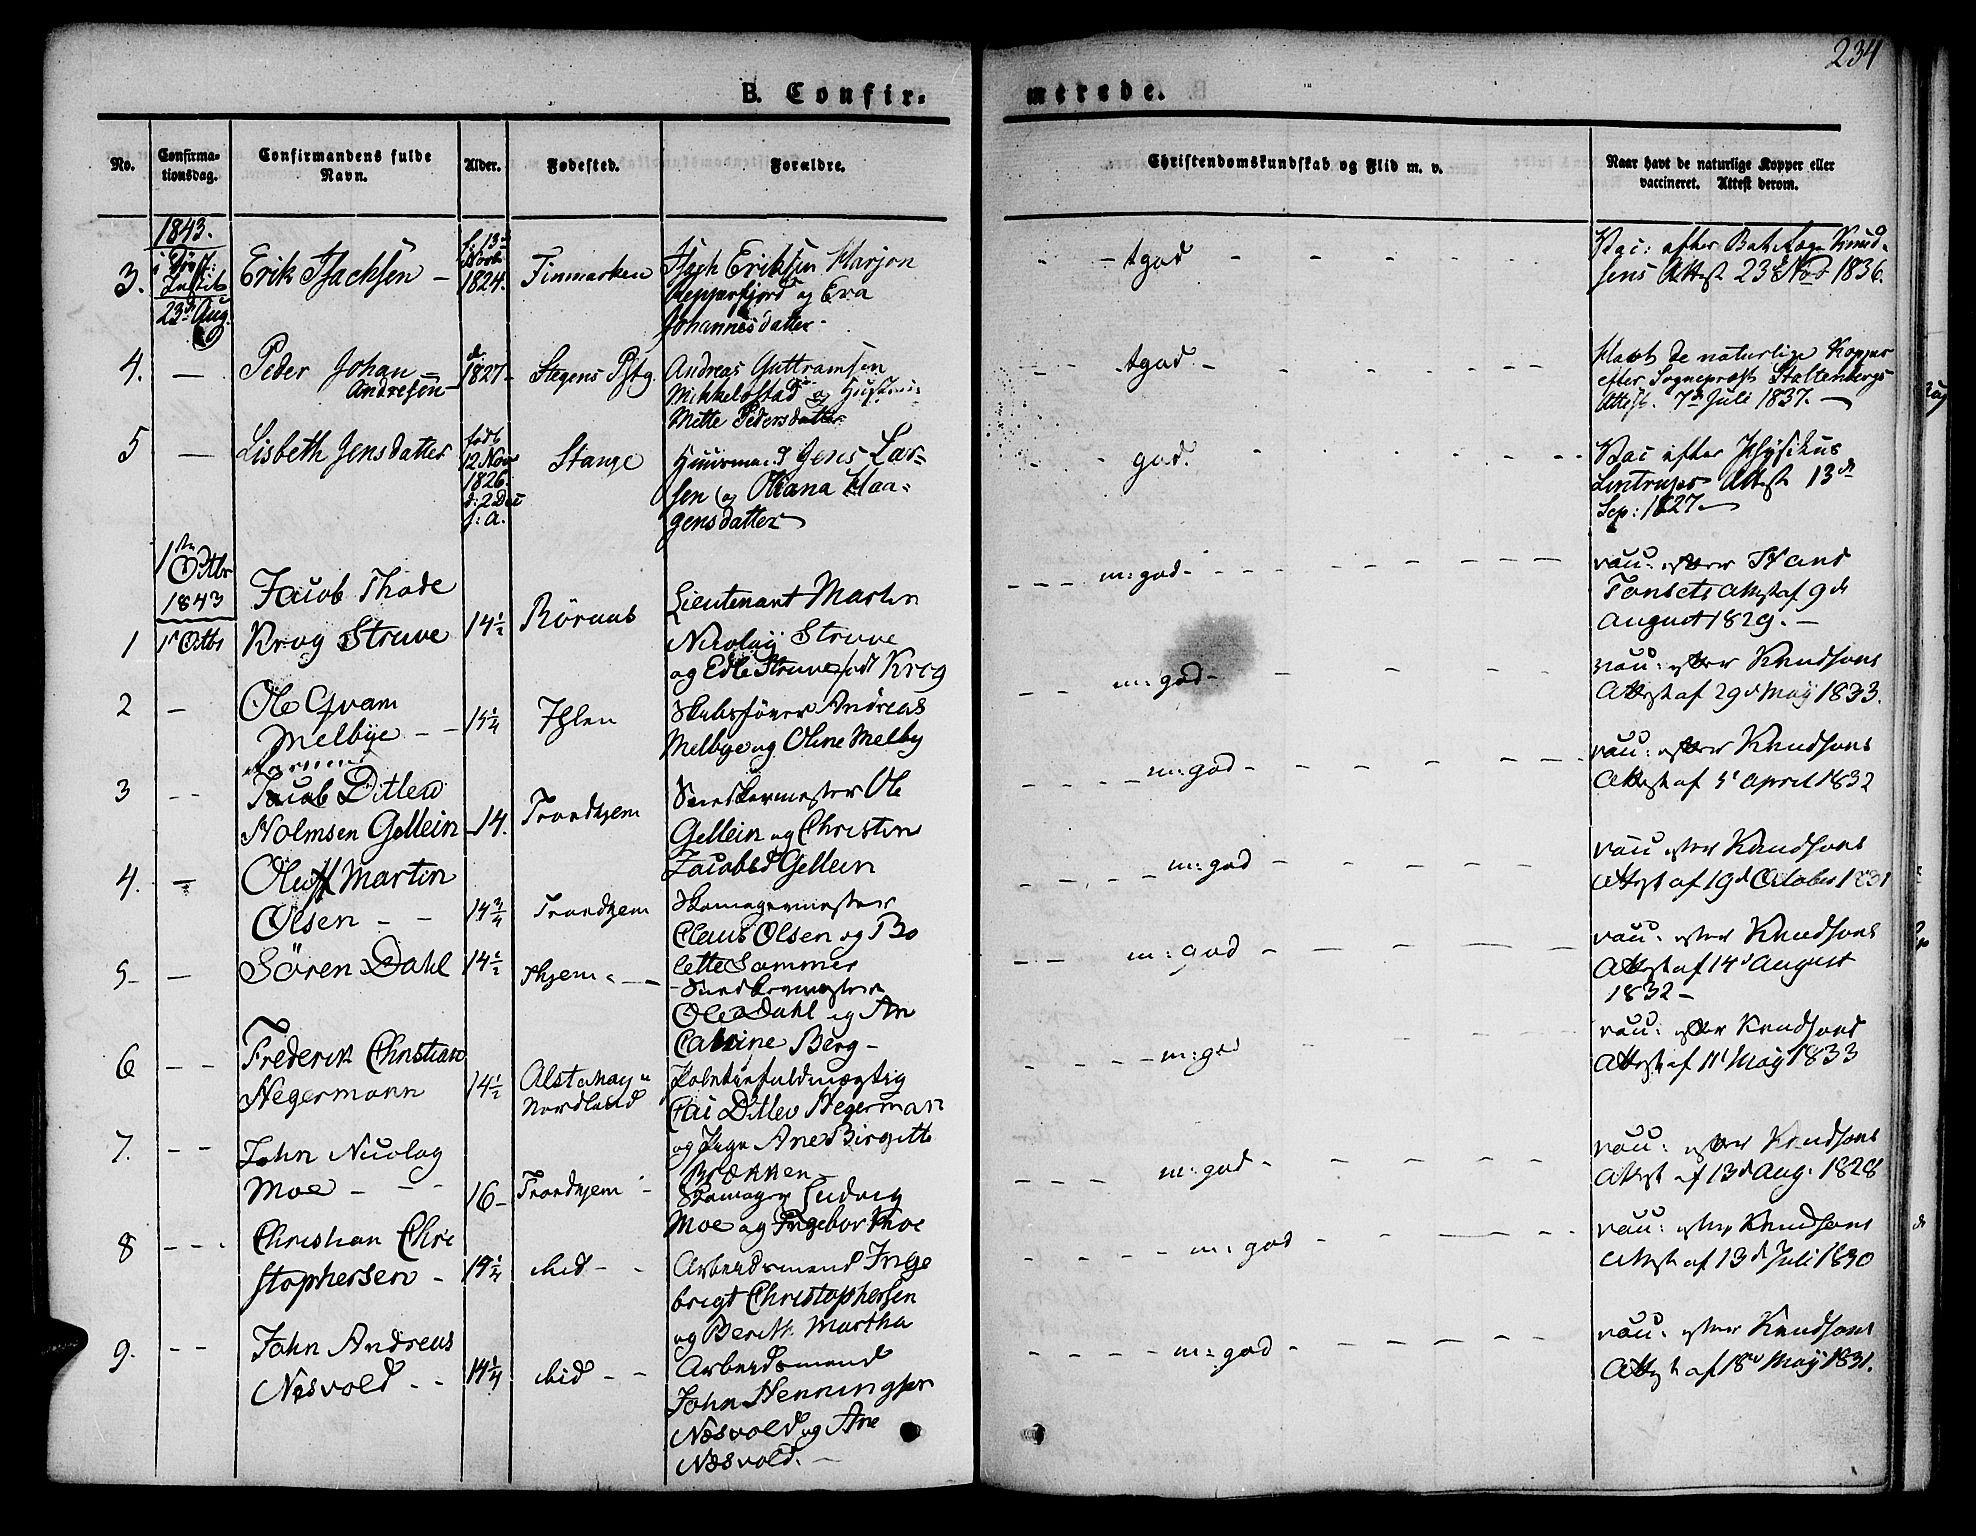 234
B. Confir-
merede.
No.
Confirma-
tionsdag.
Confirmandens fulde
Navn.
Alder.
Fødested.
Forældre.
Christendomskundskab og Flid m. v.
Naar havt de naturlige Kopper eller
vaccineret. Attest derom.
1843.
3.
23d Aug.
Erik Isachsen –
f. 13
Novbr
1824.
Finmarken
Isach Eriksen
Repparfjord og Eva
Johannesdatter
tgod
Vac: efter Knud-
sens Attest 23d Nov 1836.
4. –
Peder Johan
Andresen
1827
Stegens Pstg.
Andreas Guttormsen
Mikkelstad og Hustru
Mette Pedersdatter
tgod –
Havt de naturlige Kopper
efter Sognepræst Stoltenbergs
Attest. 7d Juli 1837. –
5 –
Lisbeth Jensdatter
født
12 Nov
1826.
d: 2 Dec
s: a.
Stange
Huusmand Jens Lar-
sen og Oleana Haa-
gensdatter
god.
Vac efter Physikus
Lintrups Attest 13de
Sep: 1827
1ste
Octbr
1843
1
1 Octbr
Jacob Thode
Krog Struve
14½
Röraas
Lieutenant Martin
Nicolay Struve
og Edle Struve født Krog
m: god
vacc: efter
Tonsets Attest af 9de
August 1829. –
2 –
Ole Qvam
Melbye – –
15¼
Ihlen
Skibsfører Andreas
Melbye og Oline Melby
m: god
vacc: efter Knudsons
Attest af 29d May 1833.
3 – –
Jacob Ditlew
Holmsen Gellein
14.
Trondhjem
Snedkermester Ole
Gellein og Christine
Jacobsd Gellein
m: god
vacc: efter Knudsons
Attest af 5t April 1832
4. –
Oluff Martin
Olsen – –
14¾
Trondhjem
Skomagermester
Claus Olsen og Bo
lette Sommer
m: god
vacc efter Knudsons
Attest af 19d October 1831
5 –
Sören Dahl
14½
Thjem
Snedkermester
Ole Dahl og An
Catrine Berg –
m: god
vacc: efter Knudsons
Attest af 14d August
1832 –
6 – –
Frederik Christian
Hegermann
14½
Alstahaug
Nordland
Politiefuldmægtig
Cai Ditlev Hegerman
og Ane Birgitte
Brækken
m: god
vacc: efter Knudsons
Attest af 11t May 1833
7. – –
John Nicolay
Moe – – –
16 –
Trondhjem
Skomager Ludvig
Moe og Ingebor Moe
m: god
vacc: efter Knudsons
Attest af 13d Aug. 1828
8 – – –
Christian Chri
stophersen –
14¼
ibid – –
Arbeidsmand Inge
brigt Christophersen
og Berith Martha
m: god
vacc: efter Knudsons
Attest af 13d Juli 1830
9. – –
John Andreas
Nesvold – –
14¼
ibid – –
Arbeidsmand
John Henningsen
Næsvold og Ane
Næsvold. –
m: god
vacc: efter Knudsons
Attest af 18d May 1831.